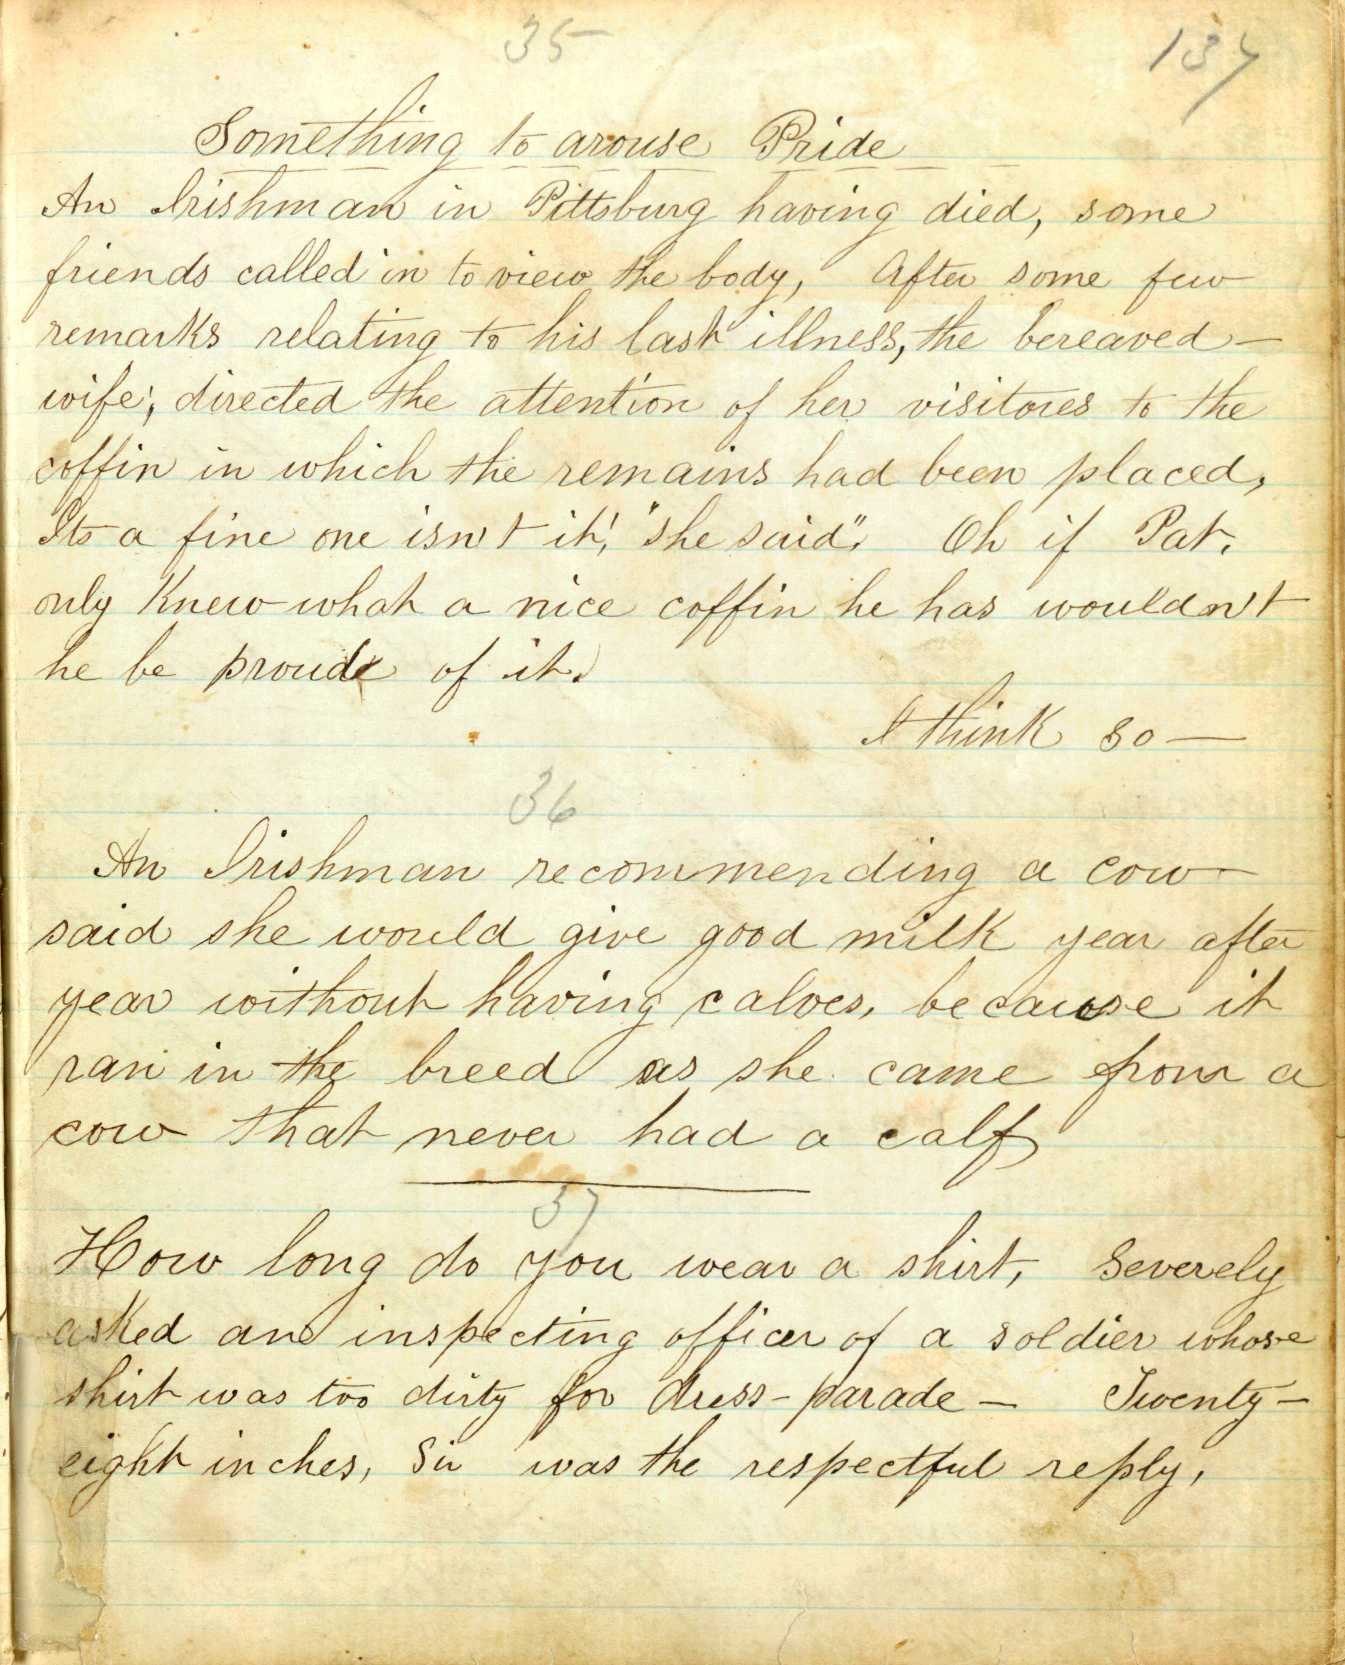 35
137
Something to arouse Pride
An Irishman in Pittsburg having died, some
friends called in to view the body, After some few
remarks relating to his last illness, the bereaved –
wife, directed the attention of her visitores to the
coffin in which the remains had been placed,
Its a fine one isn't it, "she said". Oh if Pat.
only Knew what a nice coffin he has wouldn't
he be proud of it.
I think so —
36
An Irishman recommending a cow
said she would give good milk year after
year without having calves, because it
ran in the breed as she came from a
cow that never had a calf
37
How long do you wear a shirt, Severely
asked an inspecting officer of a soldier whose
shirt was too dirty for dress-parade – Twenty-
eight inches, Sir was the respectful reply,